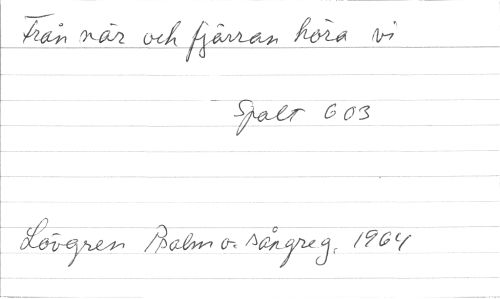 Från när och fjärran höra vi
Spalt 603
Lövgren Psalm o. sångreg. 1964